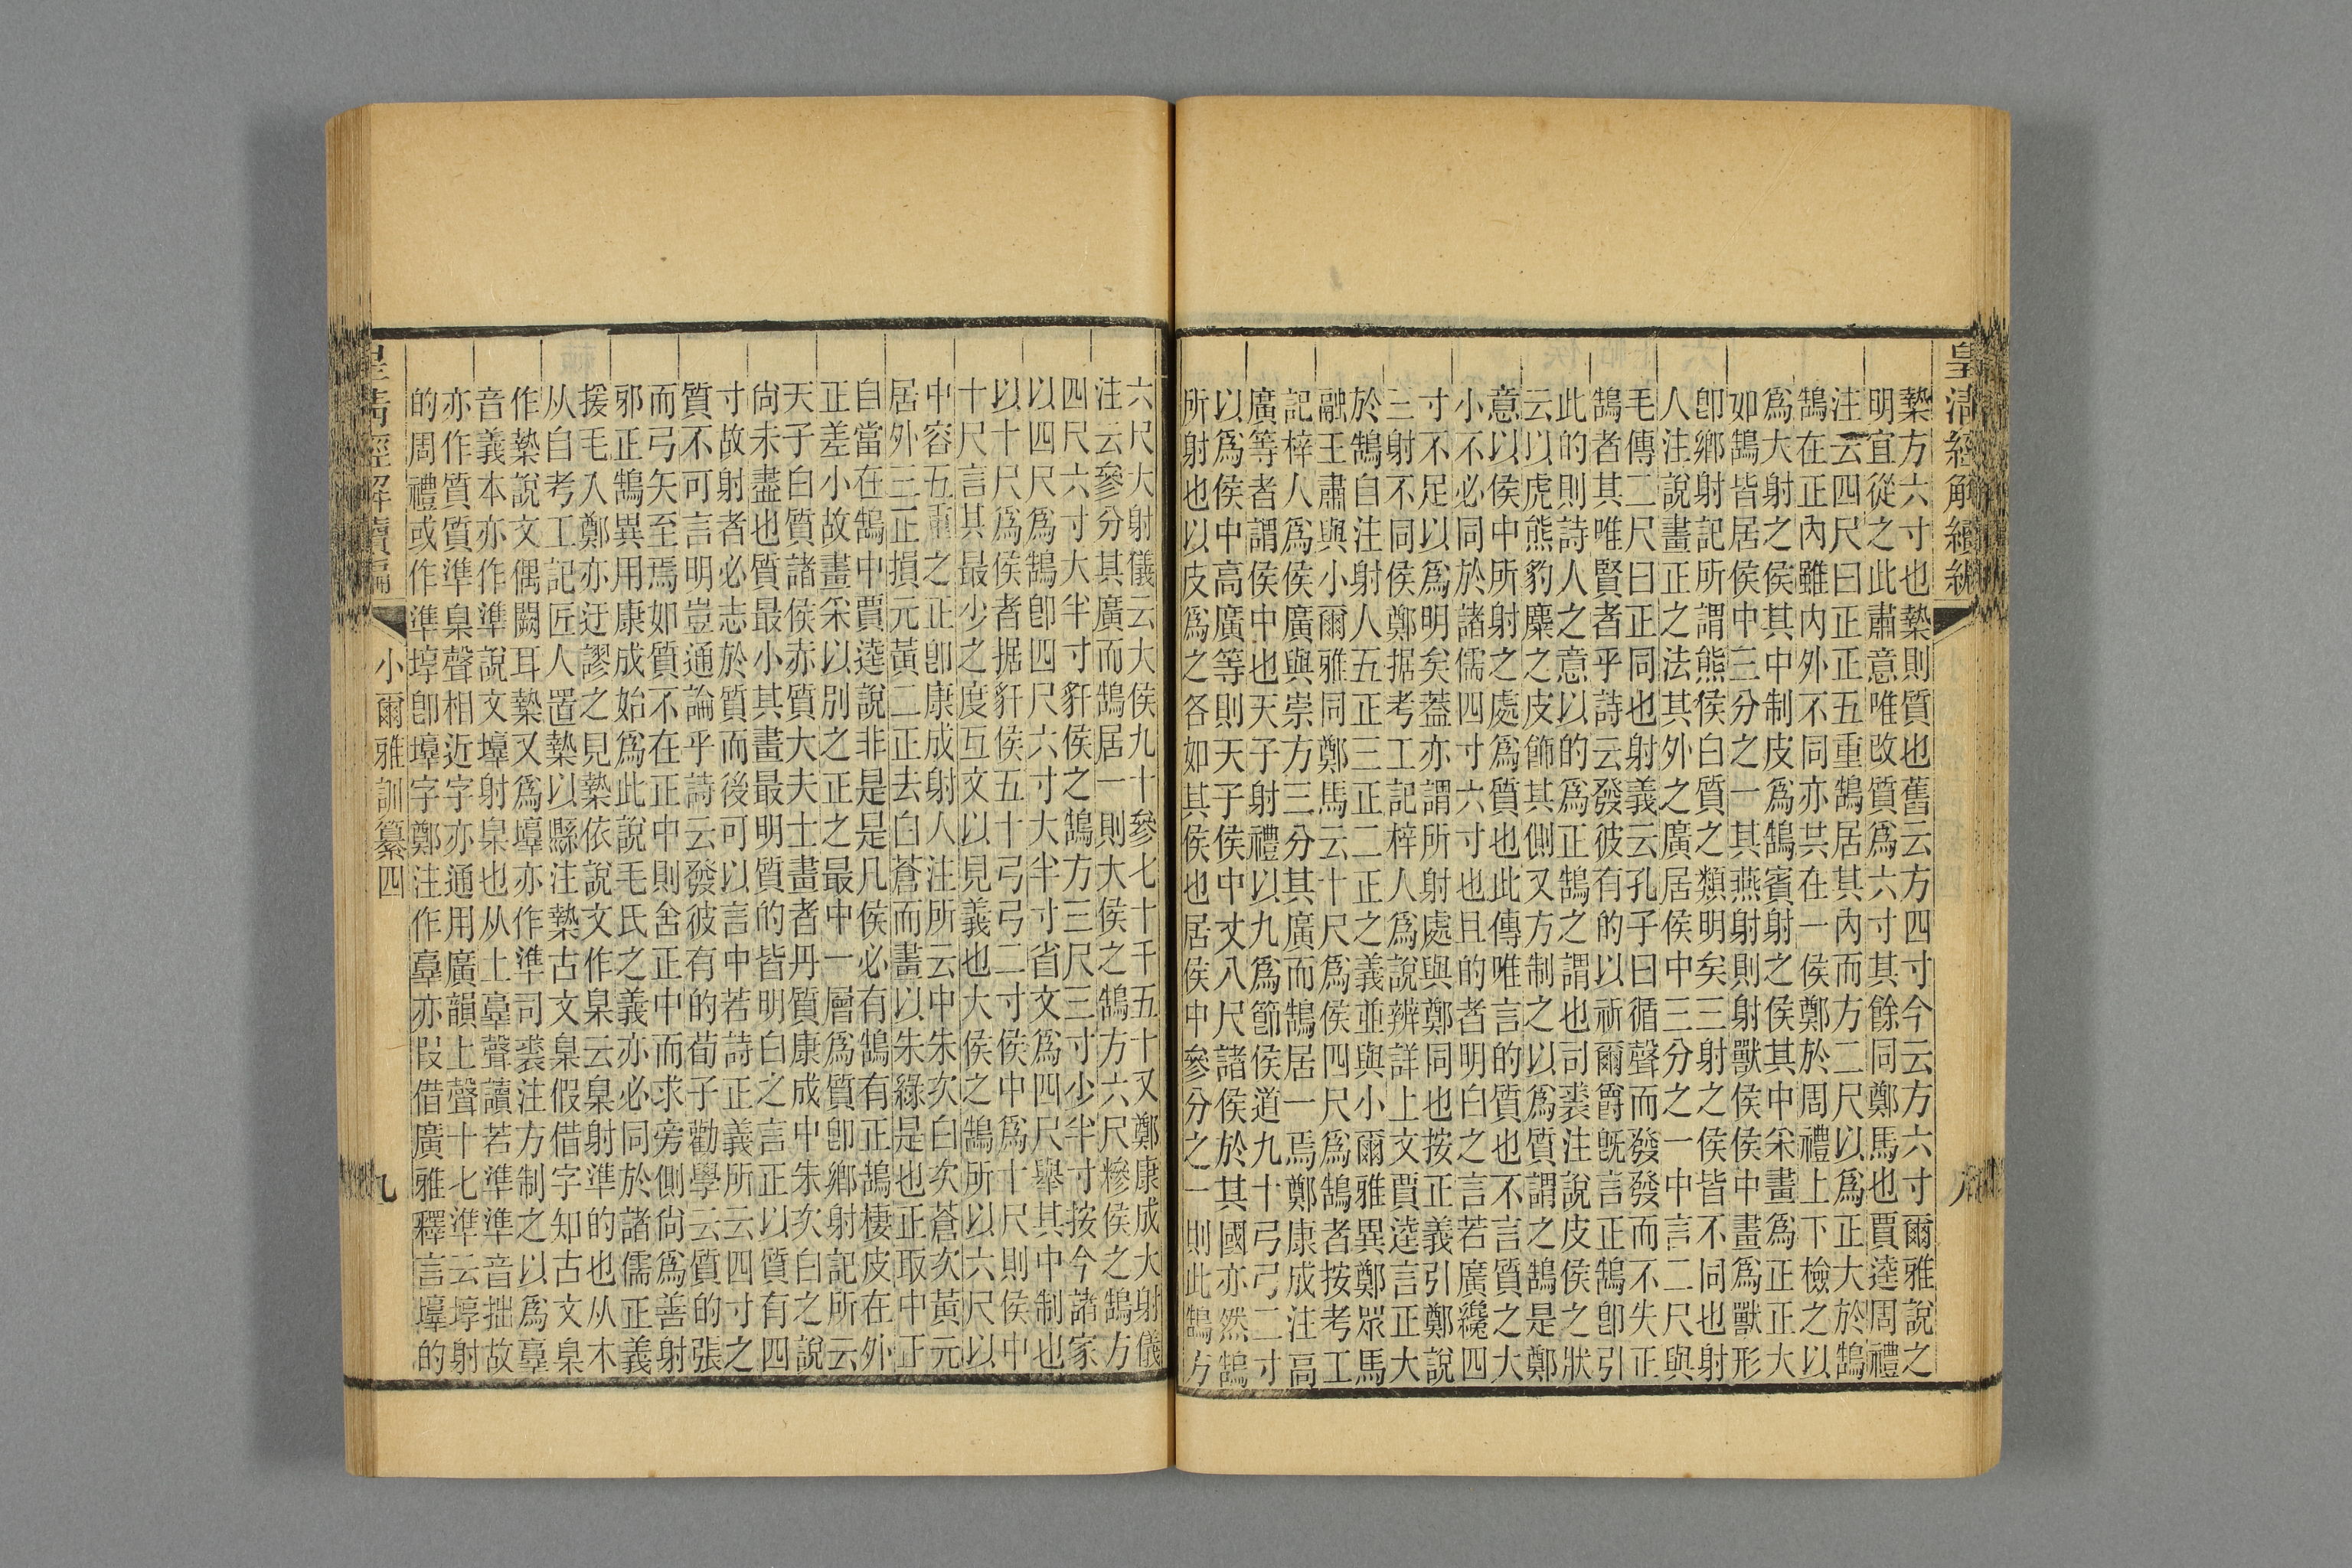 皇清經解續編
八
槷方六寸也槷則質也舊云方四寸今云方六寸爾雅說之
明宜從之此肅意唯改質爲六寸其餘同鄭馬也賈逵周禮
注云四尺曰正正五重鵠居其內而方二尺以爲正大於鵠
鵠在正內雖內外不同亦共在一侯鄭於周禮上下檢之以
爲大射之侯其中制皮爲鵠賓射之侯其中采畫爲正正大
如鵠皆居侯中三分之一其燕射則射獸侯侯中畫爲獸形
卽鄉射記所謂熊侯白質之類明矣三射之侯皆不同也射
人注說畫正之法其外之廣居侯中三分之一中言二尺與
毛傳二尺曰正同也射義云孔子曰循聲而發發而不失正
鵠者其唯賢者乎詩云發彼有的以祈爾爵旣言正鵠卽引
此的則詩人之意以的爲正鵠之謂也司裘注說皮侯之狀
云以虎熊豹麋之皮飾其側又方制之以爲質謂之鵠是鄭
意以侯中所射之處爲質也此傳唯言的質也不言質之大
小不必同於諸儒四寸六寸也且的者明白之言若廣纔四
寸不足以爲明矣蓋亦謂所射處與鄭同也按正義引鄭說
三射不同侯鄭据考工記梓人爲說辨詳上文賈逵言正大
於鵠自注射人五正三正二正之義並與小爾雅異鄭眾馬
融王肅與小爾雅同鄭馬云十尺爲侯四尺爲鵠者按考工
記梓人爲侯廣與崇方三分其廣而鵠居一焉鄭康成注高
廣等者謂侯中也天子射禮以九爲節侯道九十弓弓二寸
以爲侯中高廣等則天子侯中丈八尺諸侯於其國亦然鵠
所射也以皮爲之各如其侯也居侯中參分之一則此鵠方
六尺大射儀云大侯九十參七十干五十又鄭康成大射儀
注云參分其廣而鵠居一則大侯之鵠方六尺糝侯之鵠方
四尺六寸大半寸豻侯之鵠方三尺三寸少半寸按今諸家
以四尺爲鵠卽四尺六寸大半寸省文爲四尺舉其中制也
以十尺爲侯者据豻侯五十弓弓二寸侯中爲十尺則侯中
十尺言其最少之度互文以見義也大侯之鵠所以六尺以
中容五重之正卽康成射人注所云中朱次白次蒼次黃元
居外三正損元黃二正去白蒼而畫以朱綠是也正取中正
自當在鵠中賈逵說非是是凡侯必有鵠有正鵠棲皮在外
正差小故畫采以別之正之最中一層爲質卽鄉射記所云
天子白質諸侯赤質大夫士畫者丹質康成中朱次白之說
尙未盡也質最小其畫最明質的皆明白之言正以質有四
寸故射者必志於質而後可以言中若詩正義所云四寸之
質不可言明豈通論乎詩云發彼有的荀子勸學云質的張
而弓矢至焉如質不在正中則舍正中而求旁側尙爲善射
邪正鵠異用康成始爲此說毛氏之義亦必同於諸儒正義
援毛入鄭亦迂謬之見槷依說文作臬云臬射準的也从木
从自考工記匠人置槷以縣注槷古文臬假借字知古文臬
作槷說文偶闕耳槷又爲𡑰亦作準司裘注方制之以爲𦎧
音義本亦作準說文𡑰射臬也从土𦎧聲讀若準準音拙故
亦作質質準臬聲相近字亦通用廣韻上聲十七準云埻射
的周禮或作準埻卽𡑰字鄭注作𦎧亦叚借廣雅釋言𡑰的
皇清經解續編
小爾雅訓纂四
九